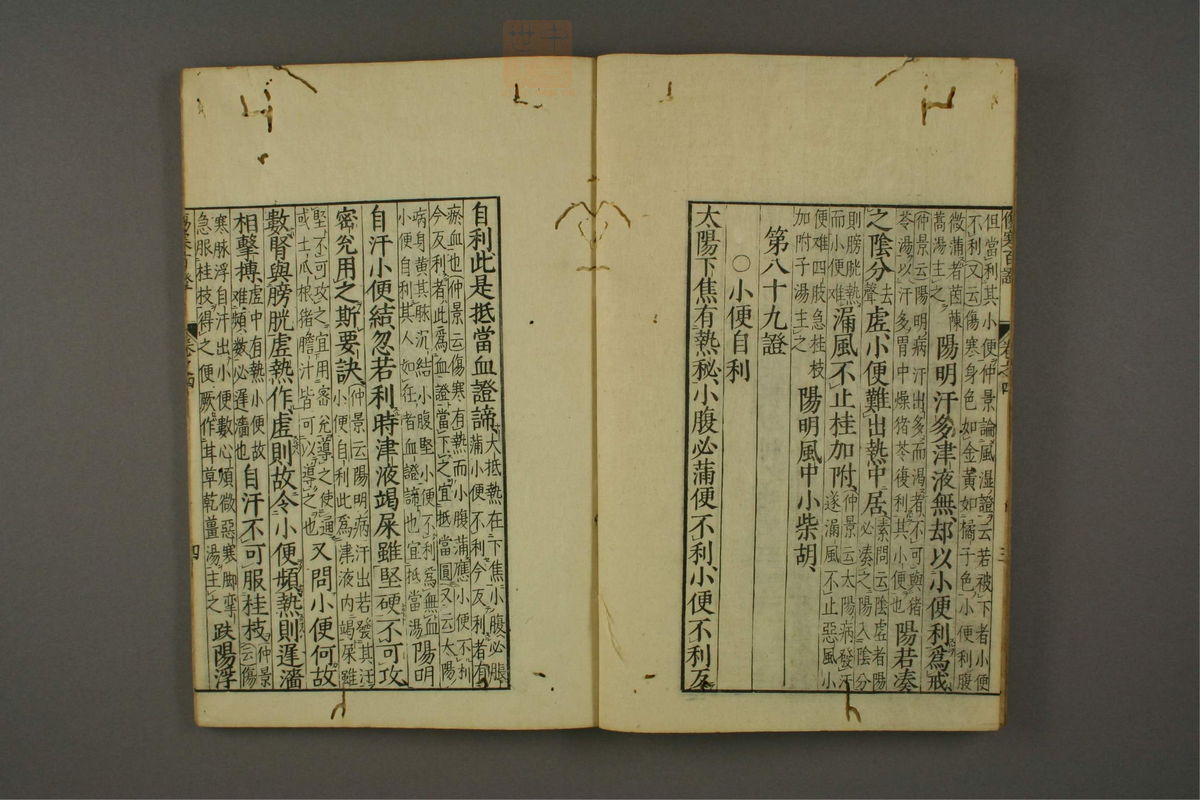 傷寒百證 卷之四 三
但當利其小便仲景論風湿證云若被下者小便
不利又云傷寒身色如金黃如橘子色小便利腹
微蒲者茵蔯
蒿湯主之陽明汗多津液無却以小便利爲戒
仲景云陽明病汗出多而渴者不可與猪
苓湯以汗多胃中燥猪苓復利其小便也陽若湊
之陰分去聲虛小便難出熱中居素問云陰虛者陽
必湊之陽入陰分
則膀胱熱
而小便难漏風不止桂加附仲景云太陽病發汗
遂漏風不止惡風小
便难四肢急桂枝
加附子湯主之陽明風中小柴胡
第八十九證
○小便自利
太陽下焦有熱秘小腹必蒲便不利小便不利反
自利此是抵當血證諦大抵熱在下焦小腹必脹
蒲小便不利今反利者有
瘀血也仲景云傷寒有熱而小腹蒲應小便不利
今反利者此爲血證當下之宜抵當圓又云太陽
病身黃其脉沉結小腹堅小便不利爲無血
小便自利其人如狂者血證諦也宜抵當湯陽明
自汗小便結忽若利時津液竭屎雖堅硬不可攻
密兊用之斯要訣仲景云陽明病汗出若發其汗
小便自利此爲津液内竭屎雖
堅不可攻之宜用密兊導之使通
或土瓜根猪膽汁皆可以導之也又問小便何故
數腎與膀胱虛熱作虛則故令小便頻熱則遅濇
相擊搏虛中有熱小便故
难頻數必遅濇也自汗不可服桂枝仲景
云傷
寒脉浮自汗出小便數心煩微惡寒脚攣
急服桂枝得之便厥作甘草乾薑湯主之趺陽浮
四